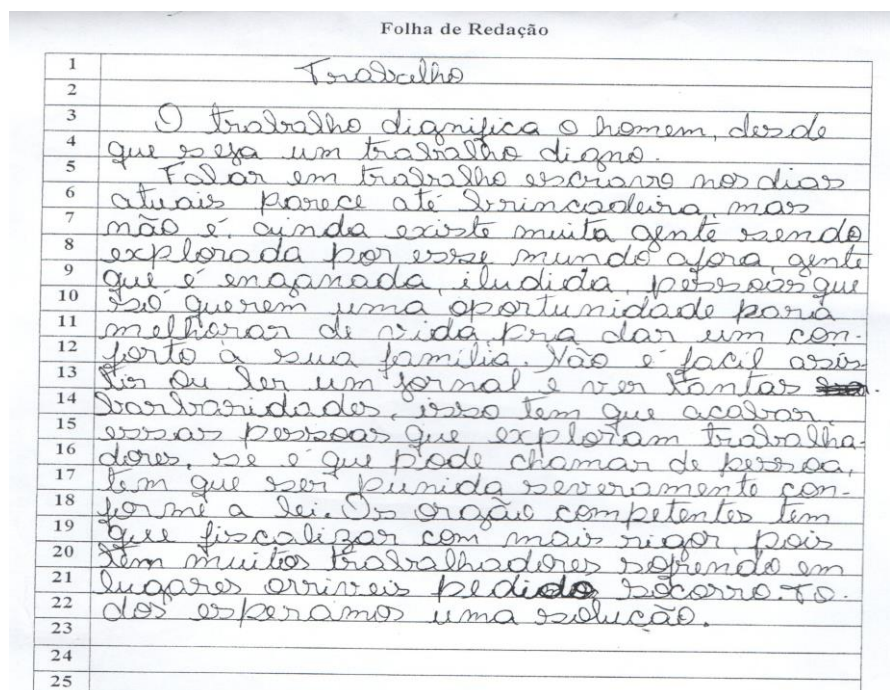 Folha de Redação
1 Trabalho
2
3 O trabalho dignifica o homem, desde
4 que seja um trabalho digno.
5 Falar em trabalho escravo nos dias
6 atuais parece até brincadeira, mas
7 não é, ainda existe muita gente sendo
8 explorada por esse mundo afora, gente
9 que é enganada, iludida, pessoas que
10 só querem uma oportunidade para
11 melhorar de vida, pra dar um con-
12 forto à sua família. Não é facil asis
13 tir ou ler um jornal e ver tantas
14 barbaridades, isso tem que acabar,
15 essas pessoas que exploram trabalha-
16 dores, se é que pode chamar de pessoa,
17 tem que ser punida severamente con-
18 forme a lei. Os orgão competentes tem
19 que fiscalizar com mais rigor, pois
20 tem muitos trabalhadores sofrendo em
21 lugares orriveis pedido socorro. To-
22 dos esperamos uma solução.
23
24
25